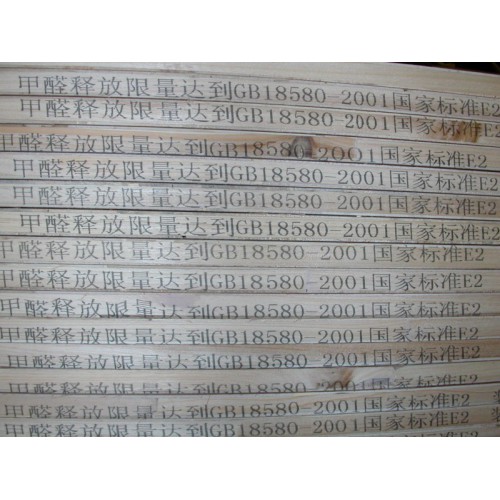 甲醛释放限量达到GB18580-2001国家标准E2
甲醛释放限量达到GB18580-2001国家标准E2
甲醛释放限量达到GB18580-2001国家标准E2
甲醛释放限量达到GB18580-2001国家标准E2
甲醛释放限量达到GB18580-2001国家标准E2
甲醛释放限量达到GB18580-2001国家标准E2
甲醛释放限量达到GB18580-2001国家标准E2
甲醛释放限量达到GB18580-2001国家标准E2
甲醛释放限量达到GB18580-2001国家标准E2
甲醛释放限量达到GB18580-2001国家标准E2
甲醛释放限量达到GB18580-2001国家标准E2
甲醛释放限量达到GB18580-2001国家标准E2
甲醛释放限量达到GB18580-2001国家标准E2
甲醛释放限量达到GB18580-2001国家标准E2